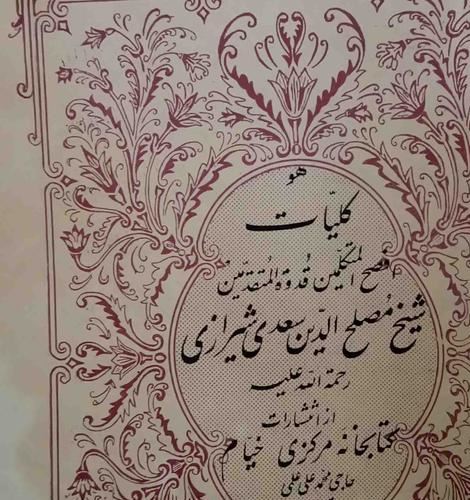 هو
کلیّات
افصح المتکلمین قدوة المتقدمین
شیخ مصلح الدین سعدی شیرازی
رحمة الله علیه
از انتشارات
کتابخانه مرکزی خیام
حاجی محمد علی علمی